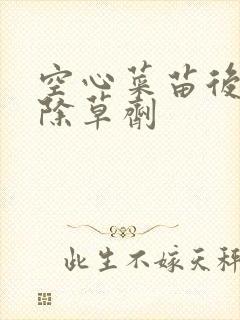 空心菜苗後
除草劑
此生不嫁天秤